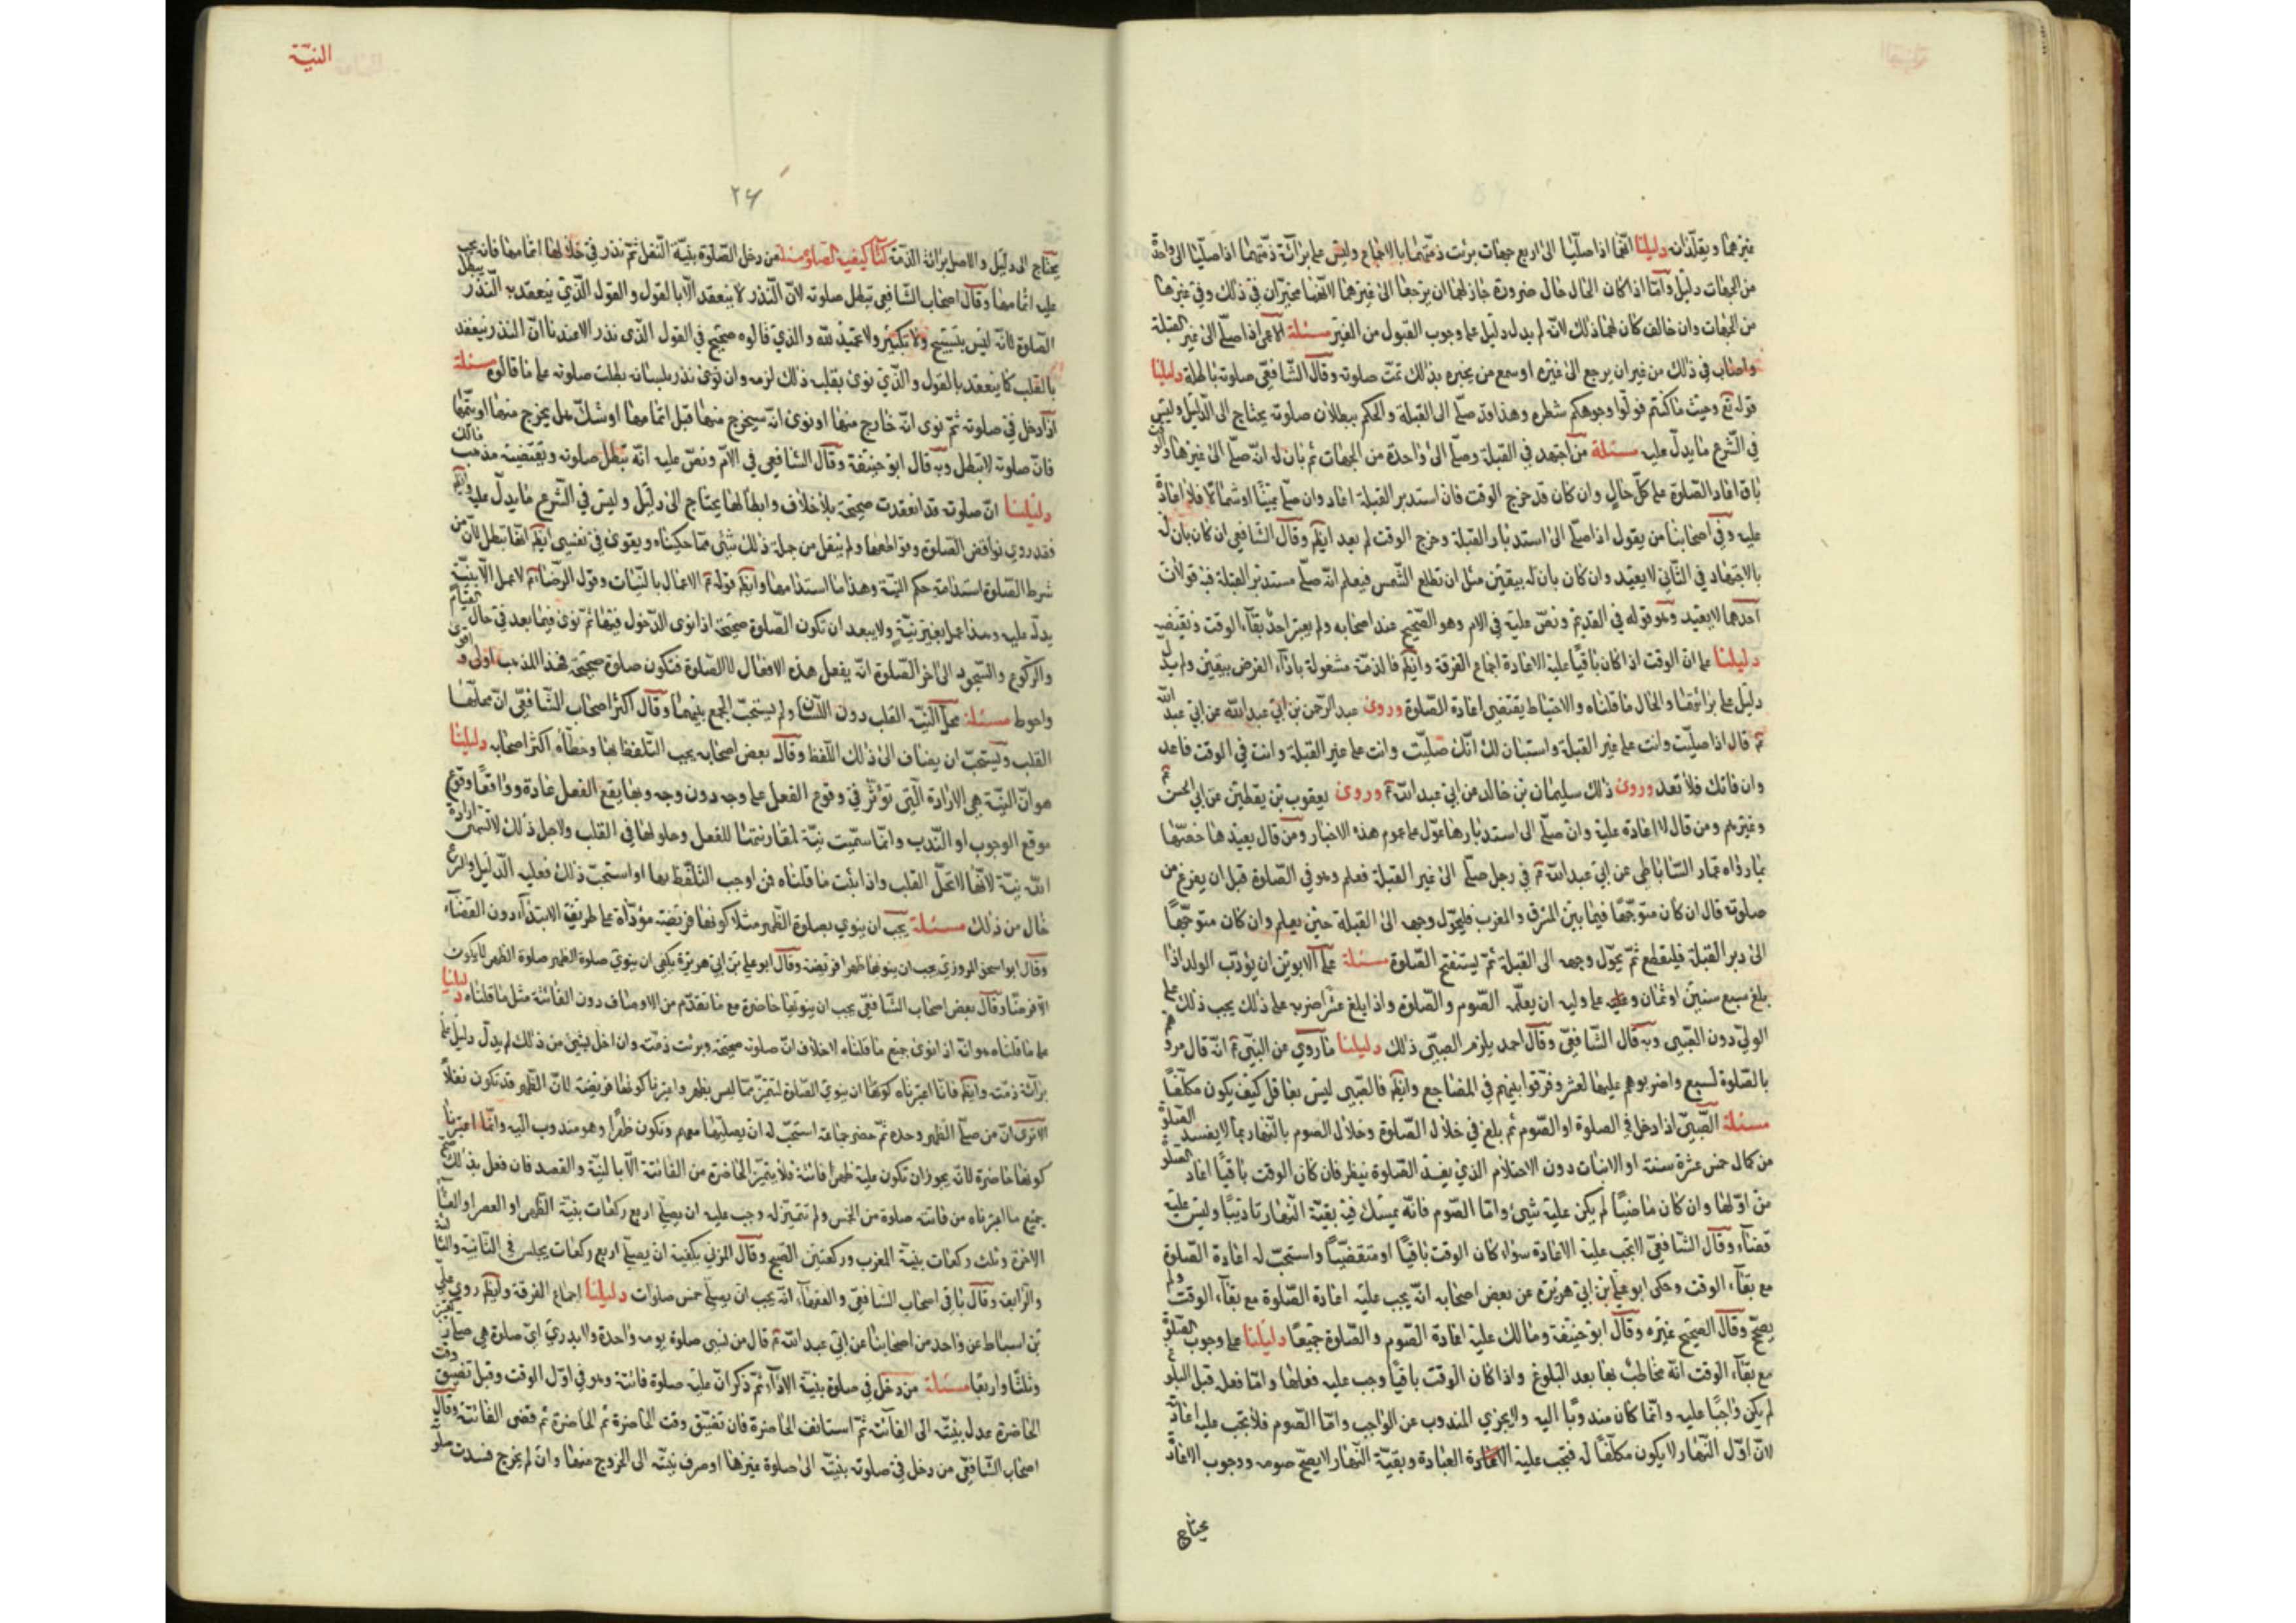 غيرهما ويقلدانه دليلنا انهما اذا صليا الى اربع جهات برئت ذمتهما بالاجماع وليس على براءة ذمتهما اذا صليا الى واحدة
من الجهات دليل وامّا اذا كان الحال حال ضرورة جاز لهما ان يرجعا الى غيرهما لانهما مخيّران في ذلك وفي غيرها
من الجهات وان خالفا كان لهما ذلك لانه لم يدل دليل على وجوب القبول من الغير مسئلة الاعمى اذا صلّى الى غير القبلة
واصاب في ذلك من غير ان يرجع الى غيره او سمع من يخبره بذلك تمت صلوته وقال الشافعي صلوته باطلة دليلنا
قوله تع وحيث ما كنتم فولّوا وجوهكم شطره وهذا قد صلّى الى القبلة والحكم ببطلان صلوته يحتاج الى الدليل وليس
في الشرع ما يدلّ عليه مسئلة من اجتهد في القبلة وصلّى الى واحدة من الجهات ثم بان له انه صلّى الى غيرها والوقت
باق اعاد الصلوة على كلّ حال وان كان قد خرج الوقت فان استدبر القبلة اعاد وان صلّى يمينًا او شمالًا فلا اعادة
عليه وفي اصحابنا من يقول اذا صلّى الى استدبار القبلة وخرج الوقت لم يعد ايضًا وقال الشافعي ان كان بان له
بالاجتهاد في الثاني لا يعيد وان كان بان له بيقين مثل ان تطلع الشمس فيعلم انه صلّى مستدبر القبلة فيه قولان
احدهما لا يعيد وهو قوله في القديم ونصّ عليه في الام وهو الصحيح عند اصحابه ولم يعتبر احد بقآء الوقت وتقضيه
دليلنا على ان الوقت اذا كان باقيًا عليه الاعادة اجماع الفرقة وايضًا فالذمّة مشغولة باداء الفرض بيقين ولم يدل
دليل على براءتها والحال ما قلناه والاحتياط يقتضي اعادة الصلوة وروى عبد الرحمن بن ابي عبد الله عن ابي عبد الله
ع قال اذا صلّيت وانت على غير القبلة واستبان لك انّك صلّيت وانت على غير القبلة وانت في الوقت فاعد
وان فاتك فلا تعد وروى ذلك سليمان بن خالد عن ابي عبد الله ع وروى يعقوب بن يقطين عن ابي الحسن ع
وغيرهم ومن قال لا اعادة عليه وان صلّى الى استدبارها عوّل على عموم هذه الاخبار ومن قال يعيدها خصّها
بما رواه عمار الساباطي عن ابي عبد الله ع في رجل صلّى الى غير القبلة فعلم وهو في الصلوة قبل ان يفرغ من
صلوته قال ان كان متوجّهًا فيما بين المشرق والمغرب فليحوّل وجهه الى القبلة حين يعلم وان كان متوجّهًا
الى دبر القبلة فليقطع ثمّ يحوّل وجهه الى القبلة ثمّ يستفتح الصلوة مسئلة على الابوين ان يؤدّب الولد اذا
بلغ سبع سنين او ثمان وعلى وليه ان يعلّمه الصوم والصلوة واذا بلغ عشرًا ضربه على ذلك يجب ذلك على
الوليّ دون الصبي وبه قال الشافعي وقال احمد يلزم الصبي ذلك دليلنا ما روي عن النبي ع انه قال مروهم
بالصلوة لسبع واضربوهم عليها لعشر وفرّقوا بينهم في المضاجع وايضًا فالصبي ليس بعاقل كيف يكون مكلّفًا
مسئلة الصبي اذا دخل في الصلوة او الصوم ثم بلغ في خلال الصلوة وخلال الصوم بالنهار بما لا يفسد الصلوة
من كمال خمس عشرة سنة او الانبات دون الاحتلام الذي يفسد الصلوة ينظر فان كان الوقت باقيًا اعاد الصلوة
من اوّلها وان كان ماضيًا لم يكن عليه شيء وامّا الصوم فانّه يمسك فيه بقية النهار تاديبًا وليس عليه
قضاء وقال الشافعي لا يجب عليه الاعادة سواء كان الوقت باقيًا او متقضّيًا واستحبّ له اعادة الصلوة
مع بقآء الوقت وحكى ابو علي بن ابي هريرة عن بعض اصحابه انّه يجب عليه اعادة الصّلوة مع بقآء الوقت ولم
يصحّ وقال الصحيح غيره وقال ابو حنيفة ومالك عليه اعادة الصوم والصلوة جميعًا دليلنا على وجوب الصلوة
مع بقآء الوقت انه مخاطب بها بعد البلوغ واذا كان الوقت باقيًا وجب عليه فعلها وامّا فعله قبل البلوغ
لم يكن واجبًا عليه وانّما كان مندوبًا اليه ولا يجزي المندوب عن الواجب وامّا الصوم فلا يجب عليه اعادته
لانّ اوّل النهار لا يكون مكلّفًا له فيجب عليه العبادة وبقيّة النهار لا يصحّ صومه ووجوب الاعادة
يحتاج
النيّة
٢۶
يحتاج الى دليل والاصل براءة الذمة كتاب كيفية الصلوة مسئلة من دخل الصلوة بنية النفل ثم نذر في خلالها اتمامها فانه يجب
عليه اتمامها وقال اصحاب الشافعي تبطل صلوته لانّ النذر لا ينعقد الّا بالقول والقول الّذي ينعقد به النّذر يبطل
الصلوة لانّه ليس بتسبيح ولا تكبير ولا تحميد لله والذي قالوه صحيح في القول الذي نذر الا عندنا انّ النذر ينعقد
بالقلب كما ينعقد بالقول والذي نوى بقلبه ذلك لزمه وان نوى نذر بلسانه بطلت صلوته على ما قالوه مسئلة
اذا دخل في صلوته ثمّ نوى انّه خارج منها او نوى انّه سيخرج منها قبل اتمامها او شكّ هل يخرج منها او يتمّها
فانّ صلوته لا تبطل وبه قال ابو حنيفة وقال الشافعي في الامّ ونصّ عليه انّه تبطل صلوته ويقتضيه مذهب مالك
دليلنا انّ صلوته قد انعقدت صحيحة بلا خلاف وابطالها يحتاج الى دليل وليس في الشرع ما يدلّ عليه وايضًا
فقد روي نواقض الصلوة وقواطعها ولم ينقل من جملة ذلك شيء ممّا حكيناه ويقوى في نفسي ايضًا انّها تبطل لانّ من
شرط الصلوة استدامة حكم النيّة وهذا ما استدامها وايضًا قوله ع الاعمال بالنيّات وقول الرضا ع لا عمل الّا بنيّة
يدلّ عليه وهذا عمل بغير نيّة ولا يبعد ان تكون الصّلوة صحيحة اذا نوى الدخول فيها ثمّ نوى فيما بعد في حال القيام
والركوع والسّجود الى اخر الصّلوة انّه يفعل هذه الافعال لا للصّلوة فتكون صلوة صحيحة فهذا المذهب اولى واقوى
واحوط مسئلة محلّ النيّة القلب دون اللّسان ولم يستحبّ الجمع بينهما وقال اكثر اصحاب الشّافعيّ انّ محلّها
القلب ويستحبّ ان يضاف الى ذلك اللّفظ وقال بعض اصحابه يجب التّلفظ بها وخطّأه اكثر اصحابه دليلنا
هو انّ النيّة هي الارادة الّتي تؤثّر في وقوع الفعل على وجه دون وجه وبها يقع الفعل عبادة وواقعًا وقوع
موقع الوجوب او النّدب وانّما سمّيت نيّة لمقارنتها للفعل وحلولها في القلب ولاجل ذلك لا تسمّى ارادة
الله نيّة لانّها لا تحلّ القلب واذا ثبت ما قلناه فمن اوجب التلفّظ بها او استحبّ ذلك فعليه الدّليل والشرع
خال من ذلك مسئلة يجب ان ينوي بصلوة الظهر مثلًا كونها فريضة مؤدّاة على طريقة الابتداء دون القضاء
وقال ابو اسحق المروزي يجب ان ينويها ظهرًا فريضة وقال ابو علي بن ابي هريرة يكفي ان ينوي صلوة الظهر صلوة الظهر لا يكون
الّا فرضًا وقال بعض اصحاب الشّافعي يجب ان ينويها حاضرة مع ما تقدّم من الاوصاف دون الفائتة مثل ما قلناه دليلنا
على ما قلناه هو انّه اذا نوى جميع ما قلناه لا خلاف انّ صلوته صحيحة وبرئت ذمّته وان اخلّ بشيء من ذلك لم يدلّ دليل على
براءة ذمّته وايضًا فانّا اعتبرناه كونها ان ينوي الصلوة لتتميّز ممّا ليس بظهر واعتبرنا كونها فريضة لانّ الظهر قد تكون نفلًا
الا ترى انّ من صلّى الظهر وحده ثمّ حضر جماعة استحبّ له ان يصلّيها معهم وتكون ظهرًا وهو مندوب اليه وانّما اعتبرنا
كونها حاضرة لانّه يجوز ان تكون عليه ظهرًا فائتة فلا يتميّز الحاضرة من الفائتة الّا بالنيّة والقصد فان فعل بذلك
جميع ما اعتبرناه من فاتته صلوة من الخمس ولم تتميّز له وجب عليه ان يصلّي اربع ركعات بنيّة الظهر او العصر او العشاء
الاخرة وثلث ركعات بنيّة المغرب وركعتين الصبح وقال المزني يكفيه ان يصلّي اربع ركعات يجلس في الثانية والثالثة
والرّابعة وقال باقي اصحاب الشافعي والفقهاء انّه يجب ان يصلّي خمس صلوات دليلنا اجماع الفرقة وايضًا روي علي
بن اسباط عن واحد من اصحابنا عن ابي عبد الله ع قال من نسي صلوة يومه واحدة ولا يدري ايّ صلوة هي صلّى ركعتين
وثلثًا واربعًا مسئلة من دخل في صلوة بنيّة الاداء ثمّ ذكر انّ عليه صلوة فائتة وهو في اوّل الوقت وقبل تضيق وقت
الحاضرة عدل بنيّته الى الفائتة ثمّ استانف الحاضرة فان تضيّق وقت الحاضرة تمّ الحاضرة ثم قضى الفائتة وقال
اصحاب الشّافعيّ من دخل في صلوته بنيّته الى صلوة غيرها او صرف نيّته الى الخروج منها وان لم يخرج فسدت صلوته